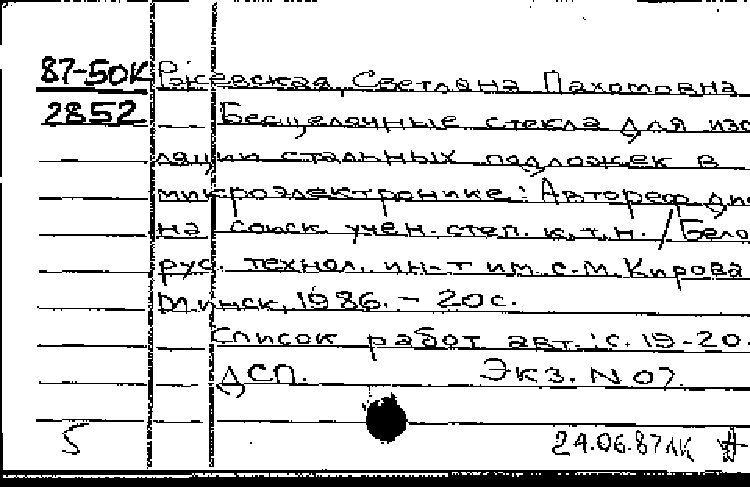 87-50К Ржевская, Светлана Пахомовна
2852 Бесщелочные стекла для изо
ляции стальных подложек в
микроэлектронике: Автореф дис
на соиск. учен. степ. к.т.н. / Бело
рус. технол. ин-т им. С.М. Кирова
Минск, 1986. - 20 с.
Список работ авт.: с. 19-20.
ДСП. Экз. N 07.
5 24.06.87 ЛК